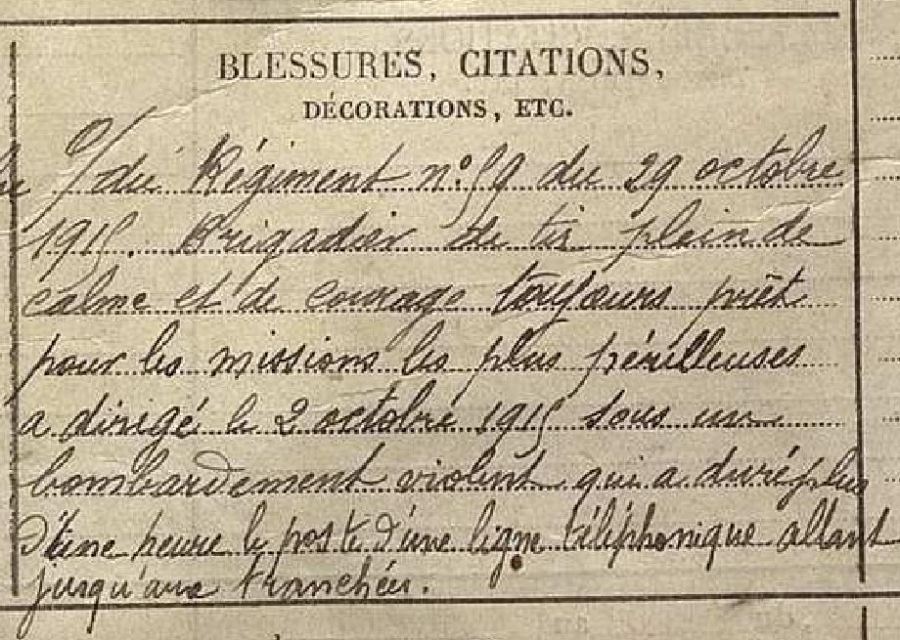 BLESSURES, CITATIONS,
DÉCORATIONS, ETC.
O/ du Régiment n° 59 du 29 octobre
1915. Brigadier de tir plein de
calme et de courage toujours prêt
pour les missions les plus périlleuses
a dirigé le 2 octobre 1915 sous un
bombardement violent qui a duré plus
d'une heure le poste d'une ligne téléphonique allant
jusqu'aux tranchées.